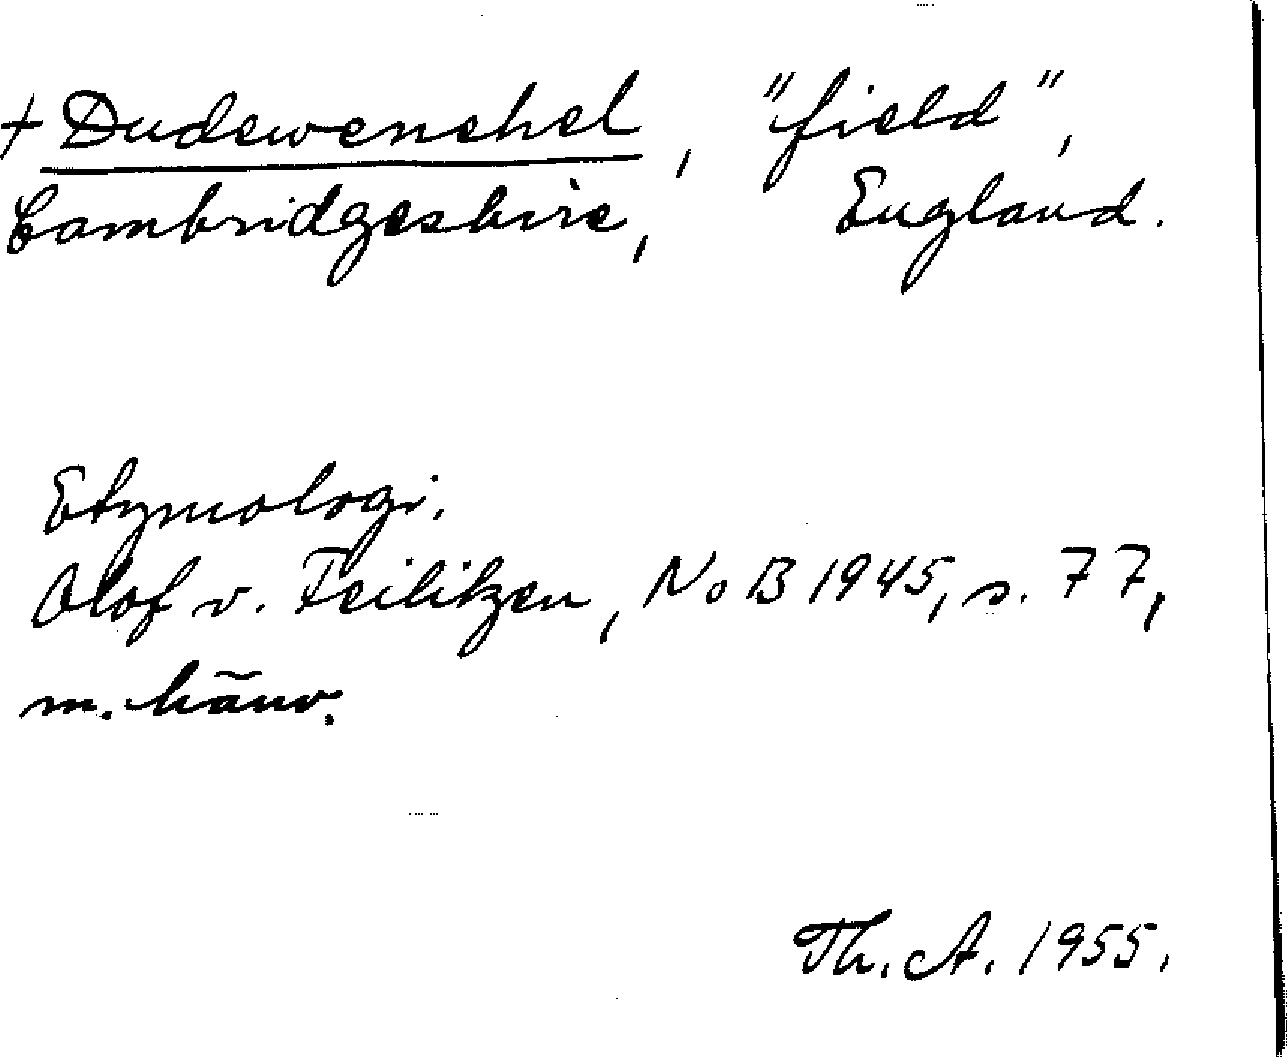 † Dudewenehel, "field",
Cambridgeshire, England.
Etymologi.
Olof v. Feilitzen, NoB 1945, s. 77,
m. hänv.
Th. A. 1955.